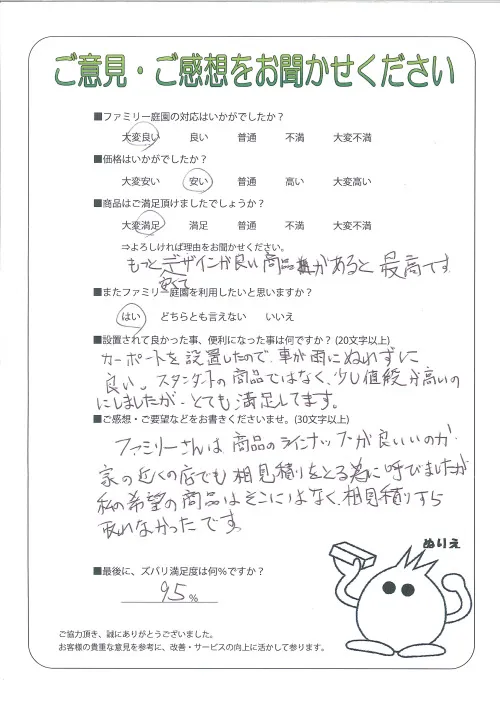 ご意見・ご感想をお聞かせください
■ファミリー庭園の対応はいかがでしたか？
大変良い 良い 普通 不満 大変不満
■価格はいかがでしたか？
大変安い 安い 普通 高い 大変高い
■商品はご満足頂けましたでしょうか？
大変満足 満足 普通 不満 大変不満
⇒よろしければ理由をお聞かせください。
もっとデザインが良い商品があると最高です
安くて
■またファミリー庭園を利用したいと思いますか？
はい どちらとも言えない いいえ
■設置されて良かった事、便利になった事は何ですか？(20文字以上)
カーポートを設置したので、車が雨にぬれずに
良い。スタンダートの商品ではなく、少し値段が高いの
にしましたが、とても満足してます。
■ご感想・ご要望などをお書きくださいませ。(30文字以上)
ファミリーさんは商品のラインナップが良いいのか
家の近くの店でも相見積りをとる為に呼びましたが
私の希望の商品はそこにはなく、相見積りすら
取れなかったです。
ぬりえ
■最後に、ズバリ満足度は何%ですか？
95%
ご協力頂き、誠にありがとうございました。
お客様の貴重な意見を参考に、改善・サービスの向上に活かして参ります。